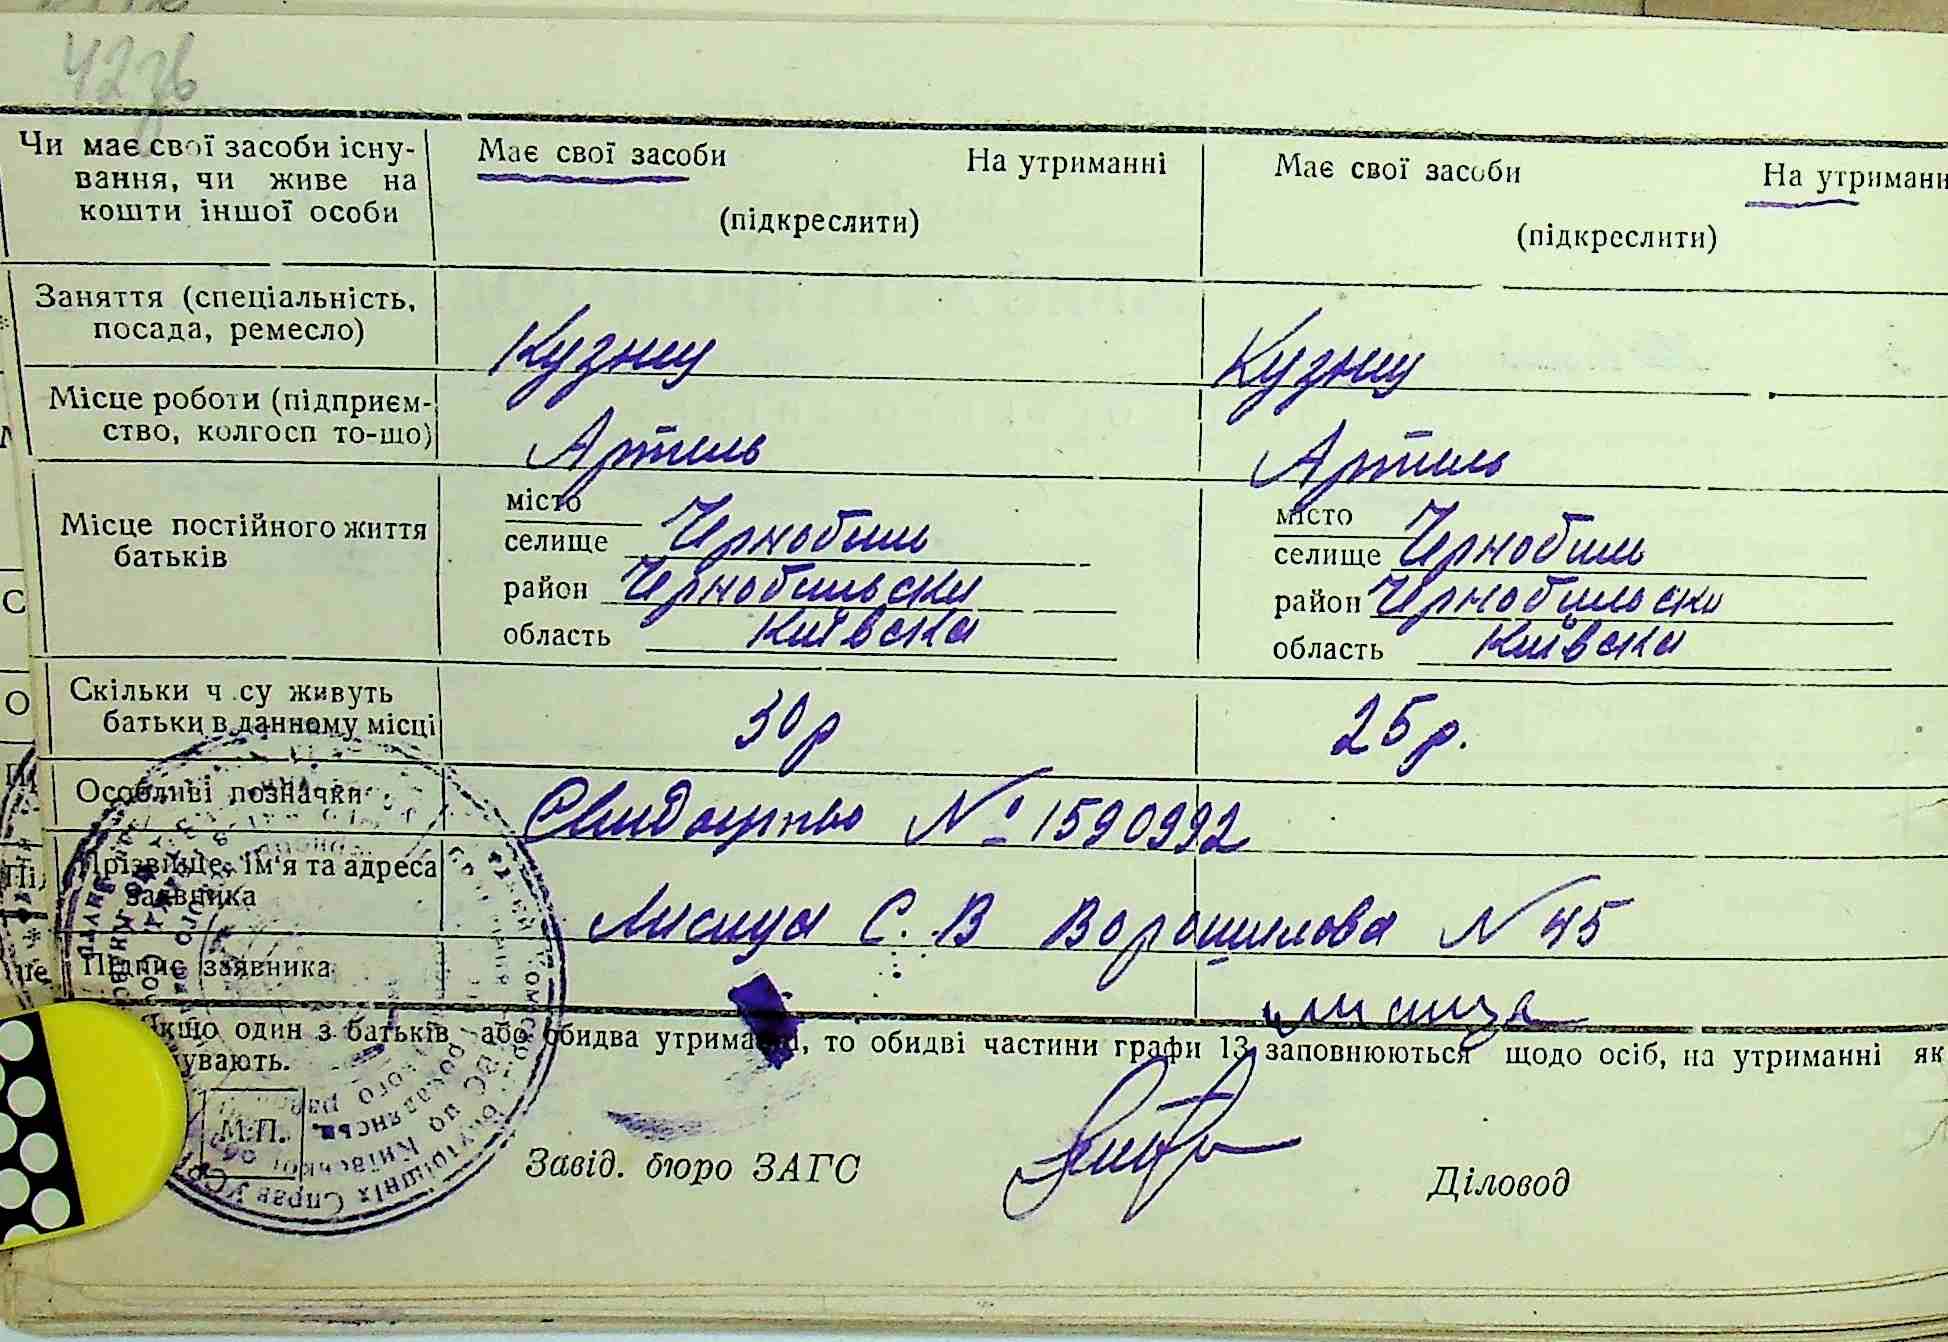 42зв
Чи має свої засоби існу-
вання, чи живе на
кошти іншої особи
Має свої засоби На утриманні
(підкреслити)
Має свої засоби На утриманн
(підкреслити)
Заняття (спеціальність,
посада, ремесло)
Кузнец Кузнец
Місце роботи (підприєм-
ство, колгосп то-що)
Артиль Артиль
Місце постійного життя
батьків
місто
селище Чернобиль
район Чернобильски
область Київска
місто
селище Чернобиль
район Чернобильски
область Київска
Скільки ч су живуть
батьки в данному місці
30р 25р.
Особливі позначки
Свидоцтво № 1590992
Прізвище, ім'я та адреса
заявника
Лисица С. В Ворошилова N 45
Підпис заявника
Лисица
Якщо один з батьків або обидва утриманні, то обидві частини графи 13 заповнюються щодо осіб, на утриманні як
увають.
М.П.
Завід. бюро ЗАГС
Діловод